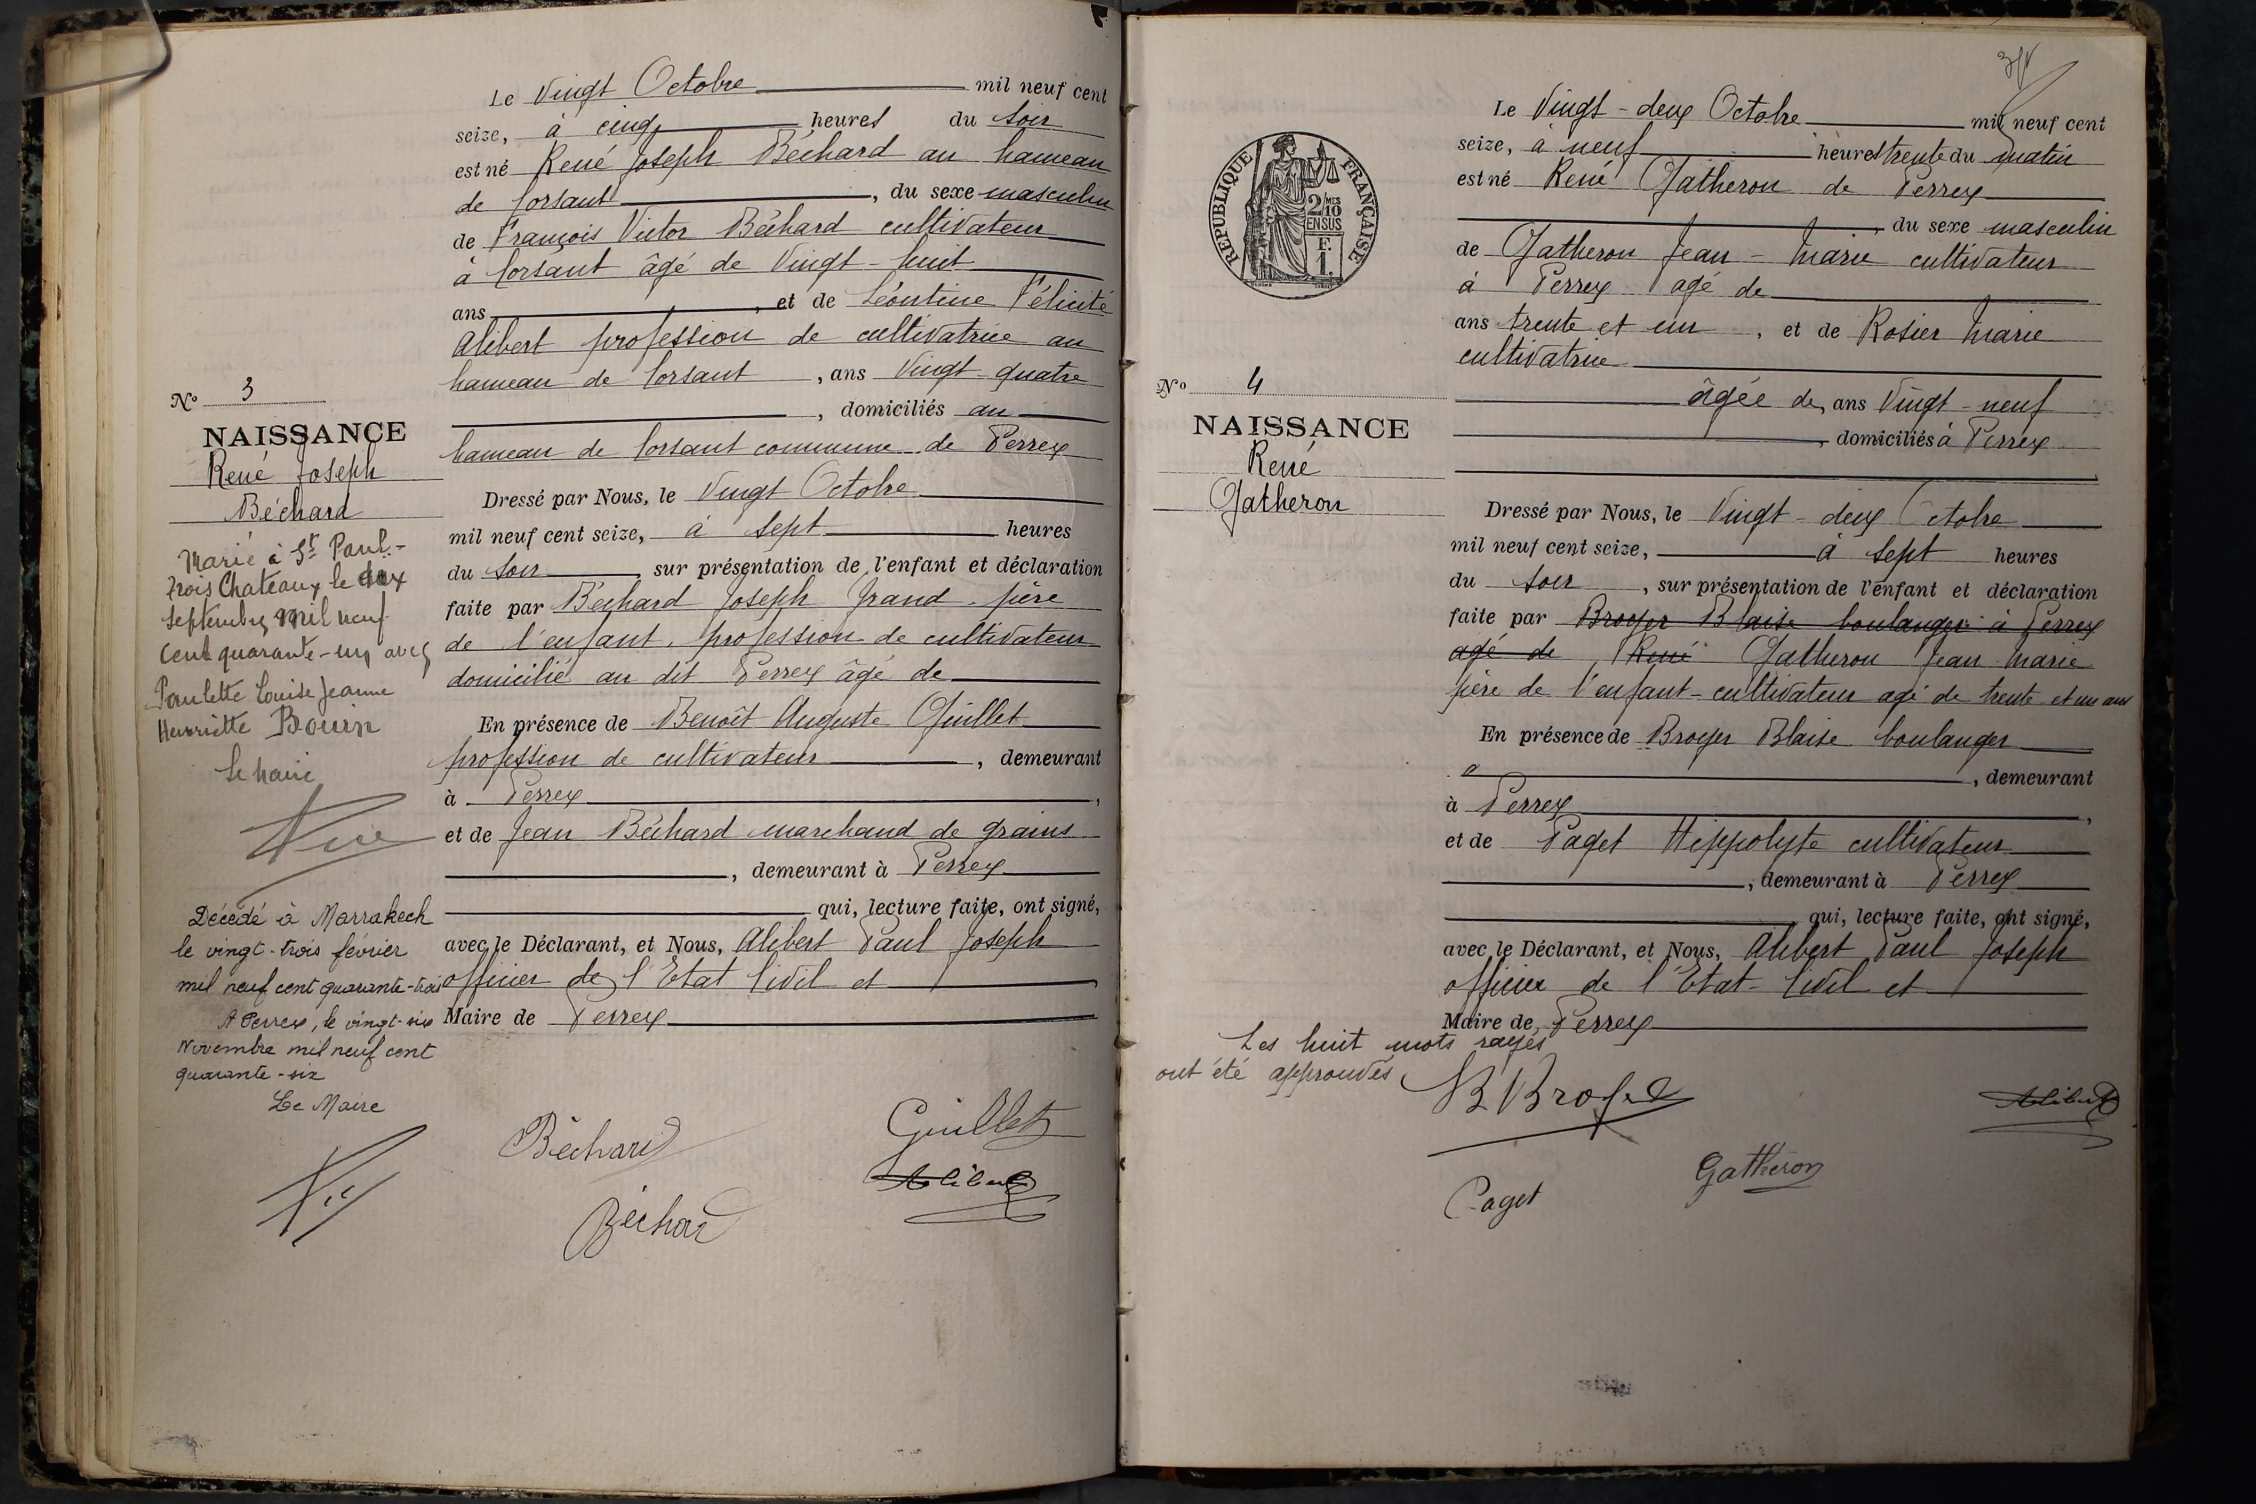 Le Vingt Octobre mil neuf cent
seize, à cinq heures du soir
est né René Joseph Béchard au hameau
de Corsant, du sexe masculin
de François Victor Béchard cultivateur
à Corsant âgé de Vingt-huit
ans, et de Léontine Félicité
Alibert profession de cultivatrice au
hameau de Corsant, ans Vingt-quatre
, domiciliés au
hameau de Corsant commune de Perrex
Dressé par Nous, le Vingt Octobre
mil neuf cent seize, à sept heures
du soir, sur présentation de l'enfant et déclaration
faite par Béchard Joseph Grand-père
de l'enfant, profession de cultivateur
domicilié au dit Perrex âgé de
En présence de Benoît Auguste Guillet
profession de cultivateur, demeurant
à Perrex,
et de Jean Béchard marchand de grains
, demeurant à Perrex
qui, lecture faite, ont signé,
avec le Déclarant, et Nous, Alibert Paul Joseph
officier de l'Etat Civil et
Maire de Perrex
Béchard
Guillet
Alibert
Béchard
No 3
NAISSANCE
René Joseph
Béchard
Marié à St Paul-
trois Chateaux le deux
septembre mil neuf
cent quarante-un avec
Paulette Louise Jeanne
Henriette Bouin
Le maire
Décédé à Marrakech
le vingt-trois février
mil neuf cent quarante-trois
A Perrex, le vingt-six
Novembre mil neuf cent
quarante-six
Le Maire
Le Vingt-deux Octobre mil neuf cent
seize, à neuf heures trente du matin
est né René Gatheron de Perrex
, du sexe masculin
de Gatheron Jean-Marie cultivateur
à Perrex agé de
ans trente et un, et de Rosier Marie
cultivatrice
âgée de, ans Vingt-neuf
, domiciliés à Perrex
Dressé par Nous, le Vingt-deux Octobre
mil neuf cent seize, à sept heures
du soir, sur présentation de l'enfant et déclaration
faite par Broyer Blaise boulanger à Perrex
agé de René Gatheron Jean Marie
père de l'enfant-cultivateur agé de trente et un ans
En présence de Broyer Blaise boulanger
, demeurant
à Perrex,
et de Paget Hippolyte cultivateur
, demeurant à Perrex
qui, lecture faite, ont signé,
avec le Déclarant, et Nous, Alibert Paul Joseph
officier de l'Etat-Civil et
Maire de Perrex
Les huit mots rayés
ont été approuvés
B Broyer
Alibert
Gatheron
Paget
REPUBLIQUE FRANÇAISE
2/10 MES
EN SUS
F.
1.
No 4
NAISSANCE
René
Gatheron